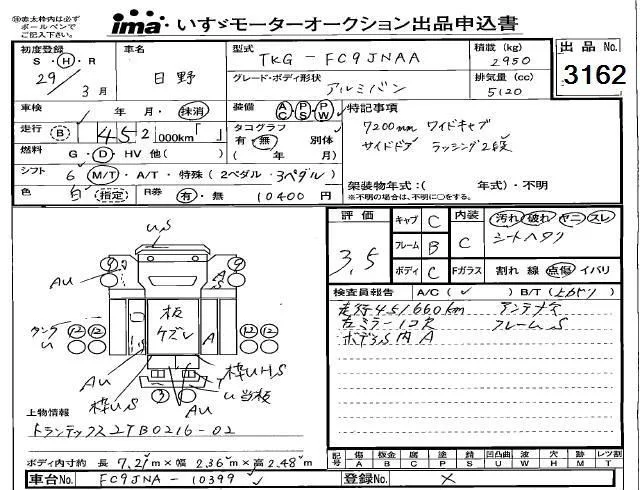 ㊟赤太枠内は必ず
ボールペンで
ご記入下さい。
ima いすゞモーターオークション出品申込書
初度登録 S・H・R 29年 3月
車名 日野
型式 TKG-FC9JNAA
グレード・ボディ形状 アルミバン
積載 (kg) 2950
排気量 (cc) 5120
出品 No. 3162
車検 年 月・抹消
装備 AC PS PW
走行 B 452,000km「 」
タコグラフ 有・無 別体
( 年 月)
特記事項
7200mm ワイドキャブ
サイドドア ラッシング2段
燃料 G・D・HV 他( )
シフト 6 M/T・A/T・特殊(2ペダル・3ペダル)
色 白 指定
R券 有・無 10400円
架装物年式:( 年式)・不明
※不明の場合は、不明に〇をする。
評価 3.5
キャブ C
フレーム B
ボディ C
内装 C
Fガラス
汚れ 破れ ヤニ スレ
シートヘタリ
割れ 線 点傷 イバリ
検査員報告 A/C( ✓ ) B/T(
走行451660km アンテナ欠
左ミラー1コ欠 フレームS
ボデS内A
US
AU
S
タンク
U
板
ケズレ
A
AU
枠US
枠UHS
U 当板
AU
上物情報
トランテックス2TB0216-02
ボディ内寸約 長 7.21m×幅 2.36m×高 2.48m
記号 傷 A 板金 B 腐 C 塗 P 錆 S 凹凸曲 U 波 W 穴 H 跡 M レツ割 T
車台No. FC9JNA-10399
登録No. ×